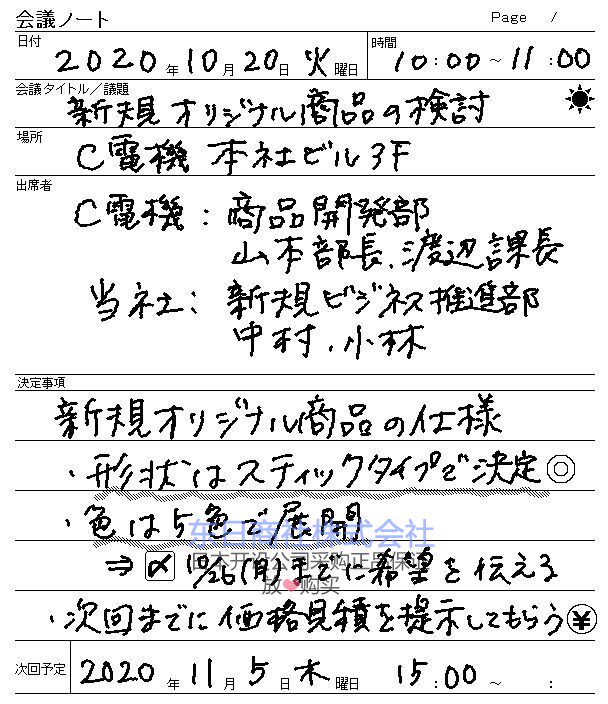 会議ノート Page /
日付 2020年10月20日 火曜日 時間 10:00~11:00
会議タイトル/議題
新規オリジナル商品の検討
場所 C電機 本社ビル3F
出席者
C電機:商品開発部
山本部長、渡辺課長
当社:新規ビジネス推進部
中村、小林
決定事項
新規オリジナル商品の仕様
・形状はスティックタイプで決定◎
・色は5色で展開
东日商社株式会社
⇒〆10/26(月)までに希望を伝える
日本开设公司采购正品保证
放❤购买
・次回までに価格見積を提示してもらう¥
次回予定 2020年11月5日 木曜日 15:00~ :